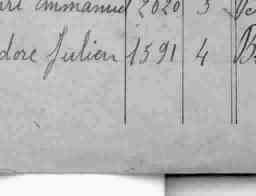 Emmanuel 2020 3
dore Julien 1591 4 B